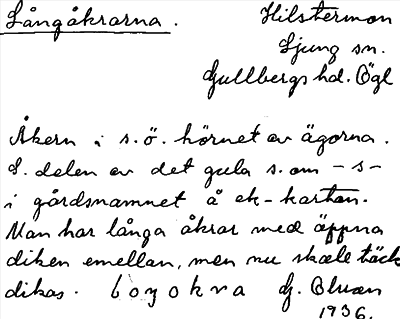 Långåkrarna.
Hilstermon
Ljung sn.
Gullbergs hd. Ögl
Åkern i s.ö. hörnet av ägorna.
S. delen av det gula s. om – s –
i gårdsnamnet å ek-kartan.
Man har långa åkrar med öppna
diken emellan, men nu skall täck
dikas. G.
1936.